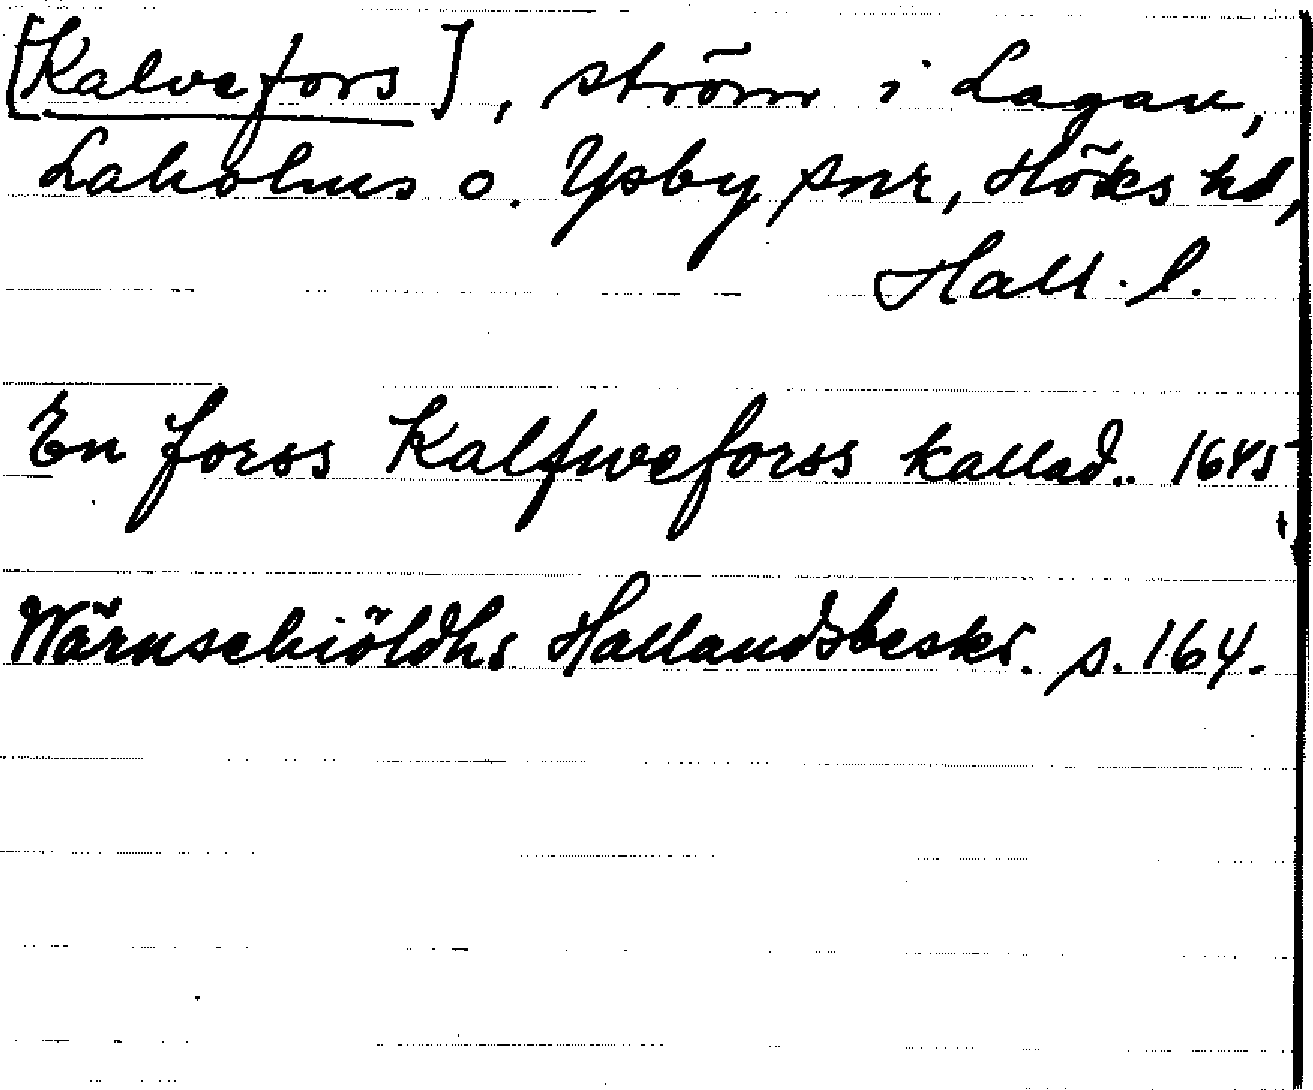 [Kalvefors], ström i Lagan,
Laholms o. Ysby snr, Höks hd,
Hall. l.
En forss Kalfweforss kallad.. 1645
Wärnschiöldhs Hallandsbeskr. s. 164.